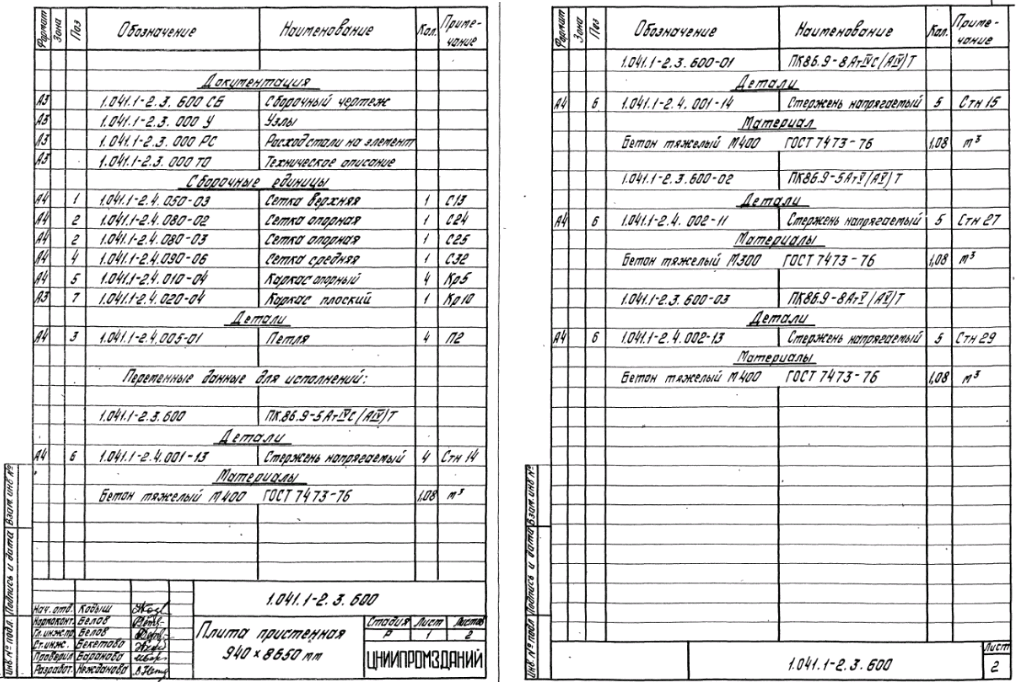 Формат Зона Поз Обозначение Наименование Кол. Примечание
Документация
А3 1.041.1-2.3. 600 СБ Сборочный чертеж
А3 1.041.1-2.3. 000 У Узлы
А3 1.041.1-2.3. 000 РС Расход стали на элемент
А3 1.041.1-2.3. 000 ТО Техническое описание
Сборочные единицы
А4 1 1.041.1-2.4. 050-03 Сетка верхняя 1 С13
А4 2 1.041.1-2.4. 080-02 Сетка опорная 1 С24
А4 2 1.041.1-2.4. 080-03 Сетка опорная 1 С25
А4 4 1.041.1-2.4. 090-06 Сетка средняя 1 С32
А4 5 1.041.1-2.4. 010-04 Каркас опорный 4 Кр5
А3 7 1.041.1-2.4. 020-04 Каркас плоский 1 Кр10
Детали
А4 3 1.041.1-2.4. 005-01 Петля 4 П2
Переменные данные для исполнений:
1.041.1-2.3. 600 ПК86.9-5АтIVС/(АIV)Т
Детали
А4 6 1.041.1-2.4. 001-13 Стержень напрягаемый 4 Стн 14
Материалы
Бетон тяжелый М400 ГОСТ 7473-76 1,08 м³
1.041.1-2.3. 600
Нач. отд. Кодыш
Нормоконт. Белов
Гл.инж.пр. Белов
Ст.инж. Бекетова
Проверил Баранова
Разработ. Нежданова
Плита пристенная
940×8650 мм
Стадия Лист Листов
Р 1 2
ЦНИИПРОМЗДАНИЙ
Инв.№ подл. Подпись и дата Взам. инв №
Формат Зона Поз Обозначение Наименование Кол. Примечание
1.041.1-2.3. 600-01 ПК86.9-8АтIVС/(АIV)Т
Детали
А4 6 1.041.1-2.4. 001-14 Стержень напрягаемый 5 Стн 15
Материал
Бетон тяжелый М400 ГОСТ 7473-76 1,08 м³
1.041.1-2.3.600-02 ПК86.9-5АтV/(АV)Т
Детали
А4 6 1.041.1-2.4. 002-11 Стержень напрягаемый 5 Стн 27
Материалы
Бетон тяжелый М300 ГОСТ 7473-76 1,08 м³
1.041.1-2.3. 600-03 ПК86.9-8АтV/(АV)Т
Детали
А4 6 1.041.1-2.4. 002-13 Стержень напрягаемый 5 Стн 29
Материалы
Бетон тяжелый М400 ГОСТ 7473-76 1,08 м³
Инв.№ подл. Подпись и дата Взам. инв №
1.041.1-2.3. 600
Лист
2